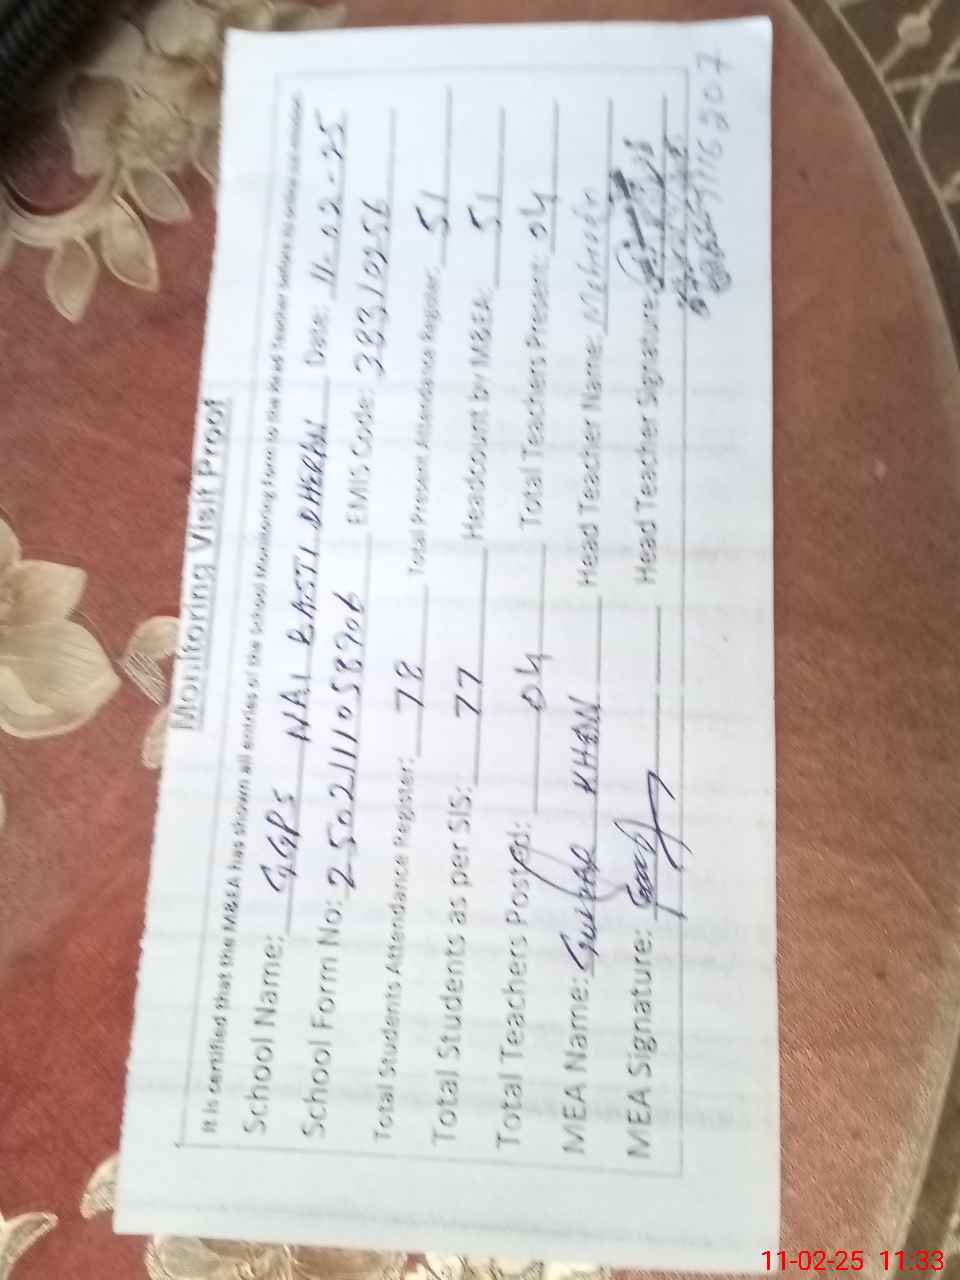 Monitoring Visit Proof
It is certified that the M&EA has shown all entries of the School Monitoring Form to the Head Teacher before
School Name: GGPS NAI BASTI DHERAN Date: 11-02-25
School Form No: 2502111058906 EMIS Code:
Total Students Attendance Register: 78 Total Present Attendance Register: 51
Total Students as per SIS: 77 Headcount by M&EA: 51
Total Teachers Posted: 04 Total Teachers Present: 04
MEA Name: KHAN Head Teacher Name:
MEA Signature: Head Teacher Signature:
11-02-25 11:33